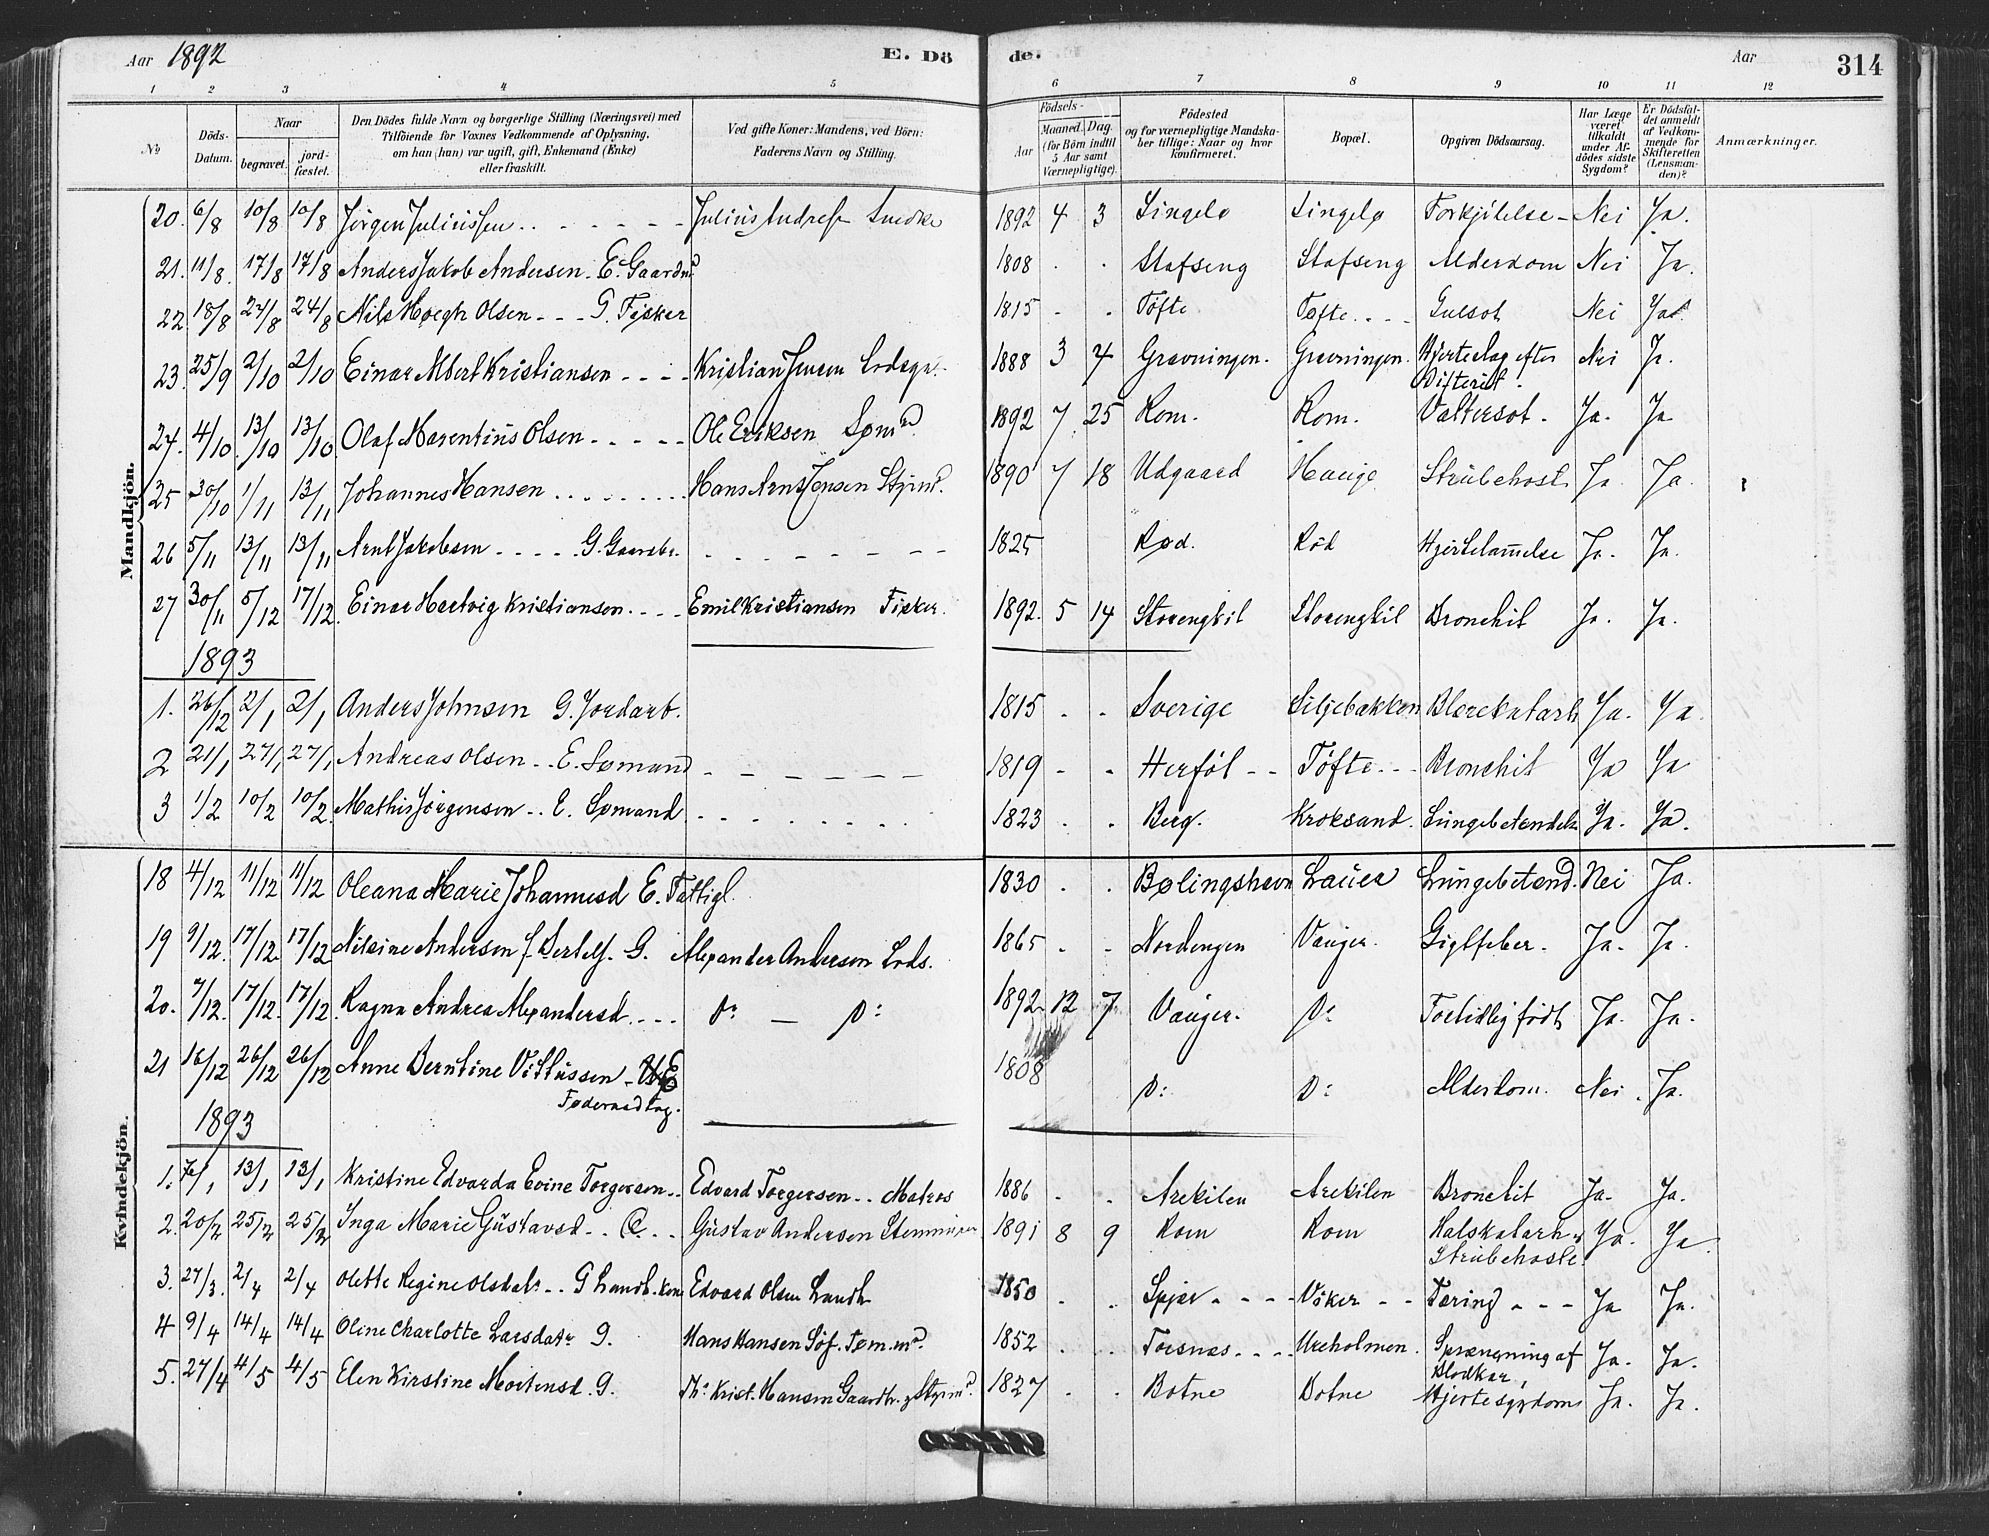 Aar 1892 E. Dö
de. Aar 314
1 2 3 4 5 6 7 8 9 10 11 12
№ Döds-Datum. Naar begravet. jordfæstet. Den Dödes fulde Navn og borgerlige Stilling (Næringsvei) med Tilföiende for Voxnes Vedkommende af Oplysning, om han (hun) var ugift, gift, Enkemand (Enke) eller fraskilt. Ved gifte Koner: Mandens, ved Börn: Faderens Navn og Stilling. Födsels- Aar Maaned. Dag (for Börn indtil 5 Aar samt Værnepligtige). Födested og for værnepligtige Mandskaber tillige: Naar og hvor konfirmeret. Bopæl. Opgiven Dödsaarsag. Har Læge været tilkaldt under Afdödes sidste Sygdom? Er Dödsfaldet anmeldt af Vedkommende for Skifteretten (Lensmanden)? Anmærkninger.
Mandkjön.
20. 6/8 10/8 10/8 Jörgen Juliussen Julius Andrest Smedke 1892 4 3 Singelø Singelø Forkjølelse Nei Ja.
21. 11/8 17/8 17/8 Anders Jakob Andersen E. Gaardmd 1808 Stafseng Stafseng Alderdom Nei Ja.
22. 18/8 24/8 24/8 Nils Høegh Olsen G. Fisker 1815 Tøfte Tøfte Gulsot Nei Ja.
23. 25/9 2/10 2/10 Einar Albert Kristiansen Kristian Jensen Lods 1888 3 4 Gravningen. Gravningen. Hjerteslag efter Difterit. Nei Ja.
24. 4/10 13/10 13/10 Olaf Marentius Olsen Ole Eriksen Sømd. 1892 7 25 Rom. Rom. Vattersot. Ja. Ja
25 30/10 1/11 13/11 Johannes Hansen Hans Arnt Jensen Styrmd. 1890 7 18 Udgaard Hauge Strubehoste Ja Ja.
26 5/11 13/11 13/11 Arnt Jakobsen G. Gaardbr. 1825 Rød. Rød Hjertelam̄else Ja. Ja.
27 30/11 5/12 17/12. Einar Hartvig Kristiansen. Emil Kristiansen Fisker. 1892. 5 14 Storengkil Storengkil Bronchit Ja. Ja.
1893
1. 26/12 2/1 2/1 Anders Johnsen G. Jordarb. 1815 Sverige Siljebakken Blærekatarh Ja. Ja.
2 21/1 27/1 27/1 Andreas Olsen E. Sømand 1819 Herføl Tøfte Bronchit Ja Ja
3 1/2 10/2 10/2. Mathis Jörgensen E. Sømand 1823 Berg. Kroksand. Lungebetændelse Ja. Ja.
Kvindekjön.
18 4/12 11/12 11/12 Oleana Marie Johannesd E. Fattigl. 1830 Bølingshavn Lauer Lungebetænd. Nei Ja.
19 9/12. 17/12. 17/12 Nilsine Andersen f. Bertels. G. Alexander Andersen Lods. 1865 Nordengen Vauger. Gigtfeber. Ja. Ja.
20. 7/12. 17/12. 17/12. Ragna Andrea Alexandersd Do — Do: 1892 12 7 Vauger. Do Fortidlig født Ja. Ja.
21 16/12 26/12 26/12 Anne Berntine Vitussen E 1808 Do: Do: Alderdom. Nei. Ja.
Føderaadtag.
1893
1. 7/1 13/1 13/1 Kristine Edvarda Evine Torgersen Edvard Torgersen Matros 1886 Arekilen Arekilen Bronchit Ja. Ja.
2. 20/2 25/2 25/2 Inga Marie Gustavsd Gustav Andersen Stenminer 1891 8 9 Rom Rom Halskatarh og Strubehoste. Ja. Ja.
3. 27/3. 2/4 2/4 Olette Regine Olsdatr G Landh. Kone Edvard Olsen Landh 1850 Spjær Viker Tæring Ja Ja.
4 9/4 14/4 14/4 Oline Charlotte Larsdatr G. Hans Hansen Søf. Tøm.md. 1852 Torsnæs Ureholmen. Sprængning af Blodkar, Ja. Ja.
5. 27/4 4/5 4/5 Elen Kirstine Mortensd. G. Th. Krist. Hansen Gaardbr. & Styrmd. 1827 Botne Botne Hjertesygdom Ja. Ja.